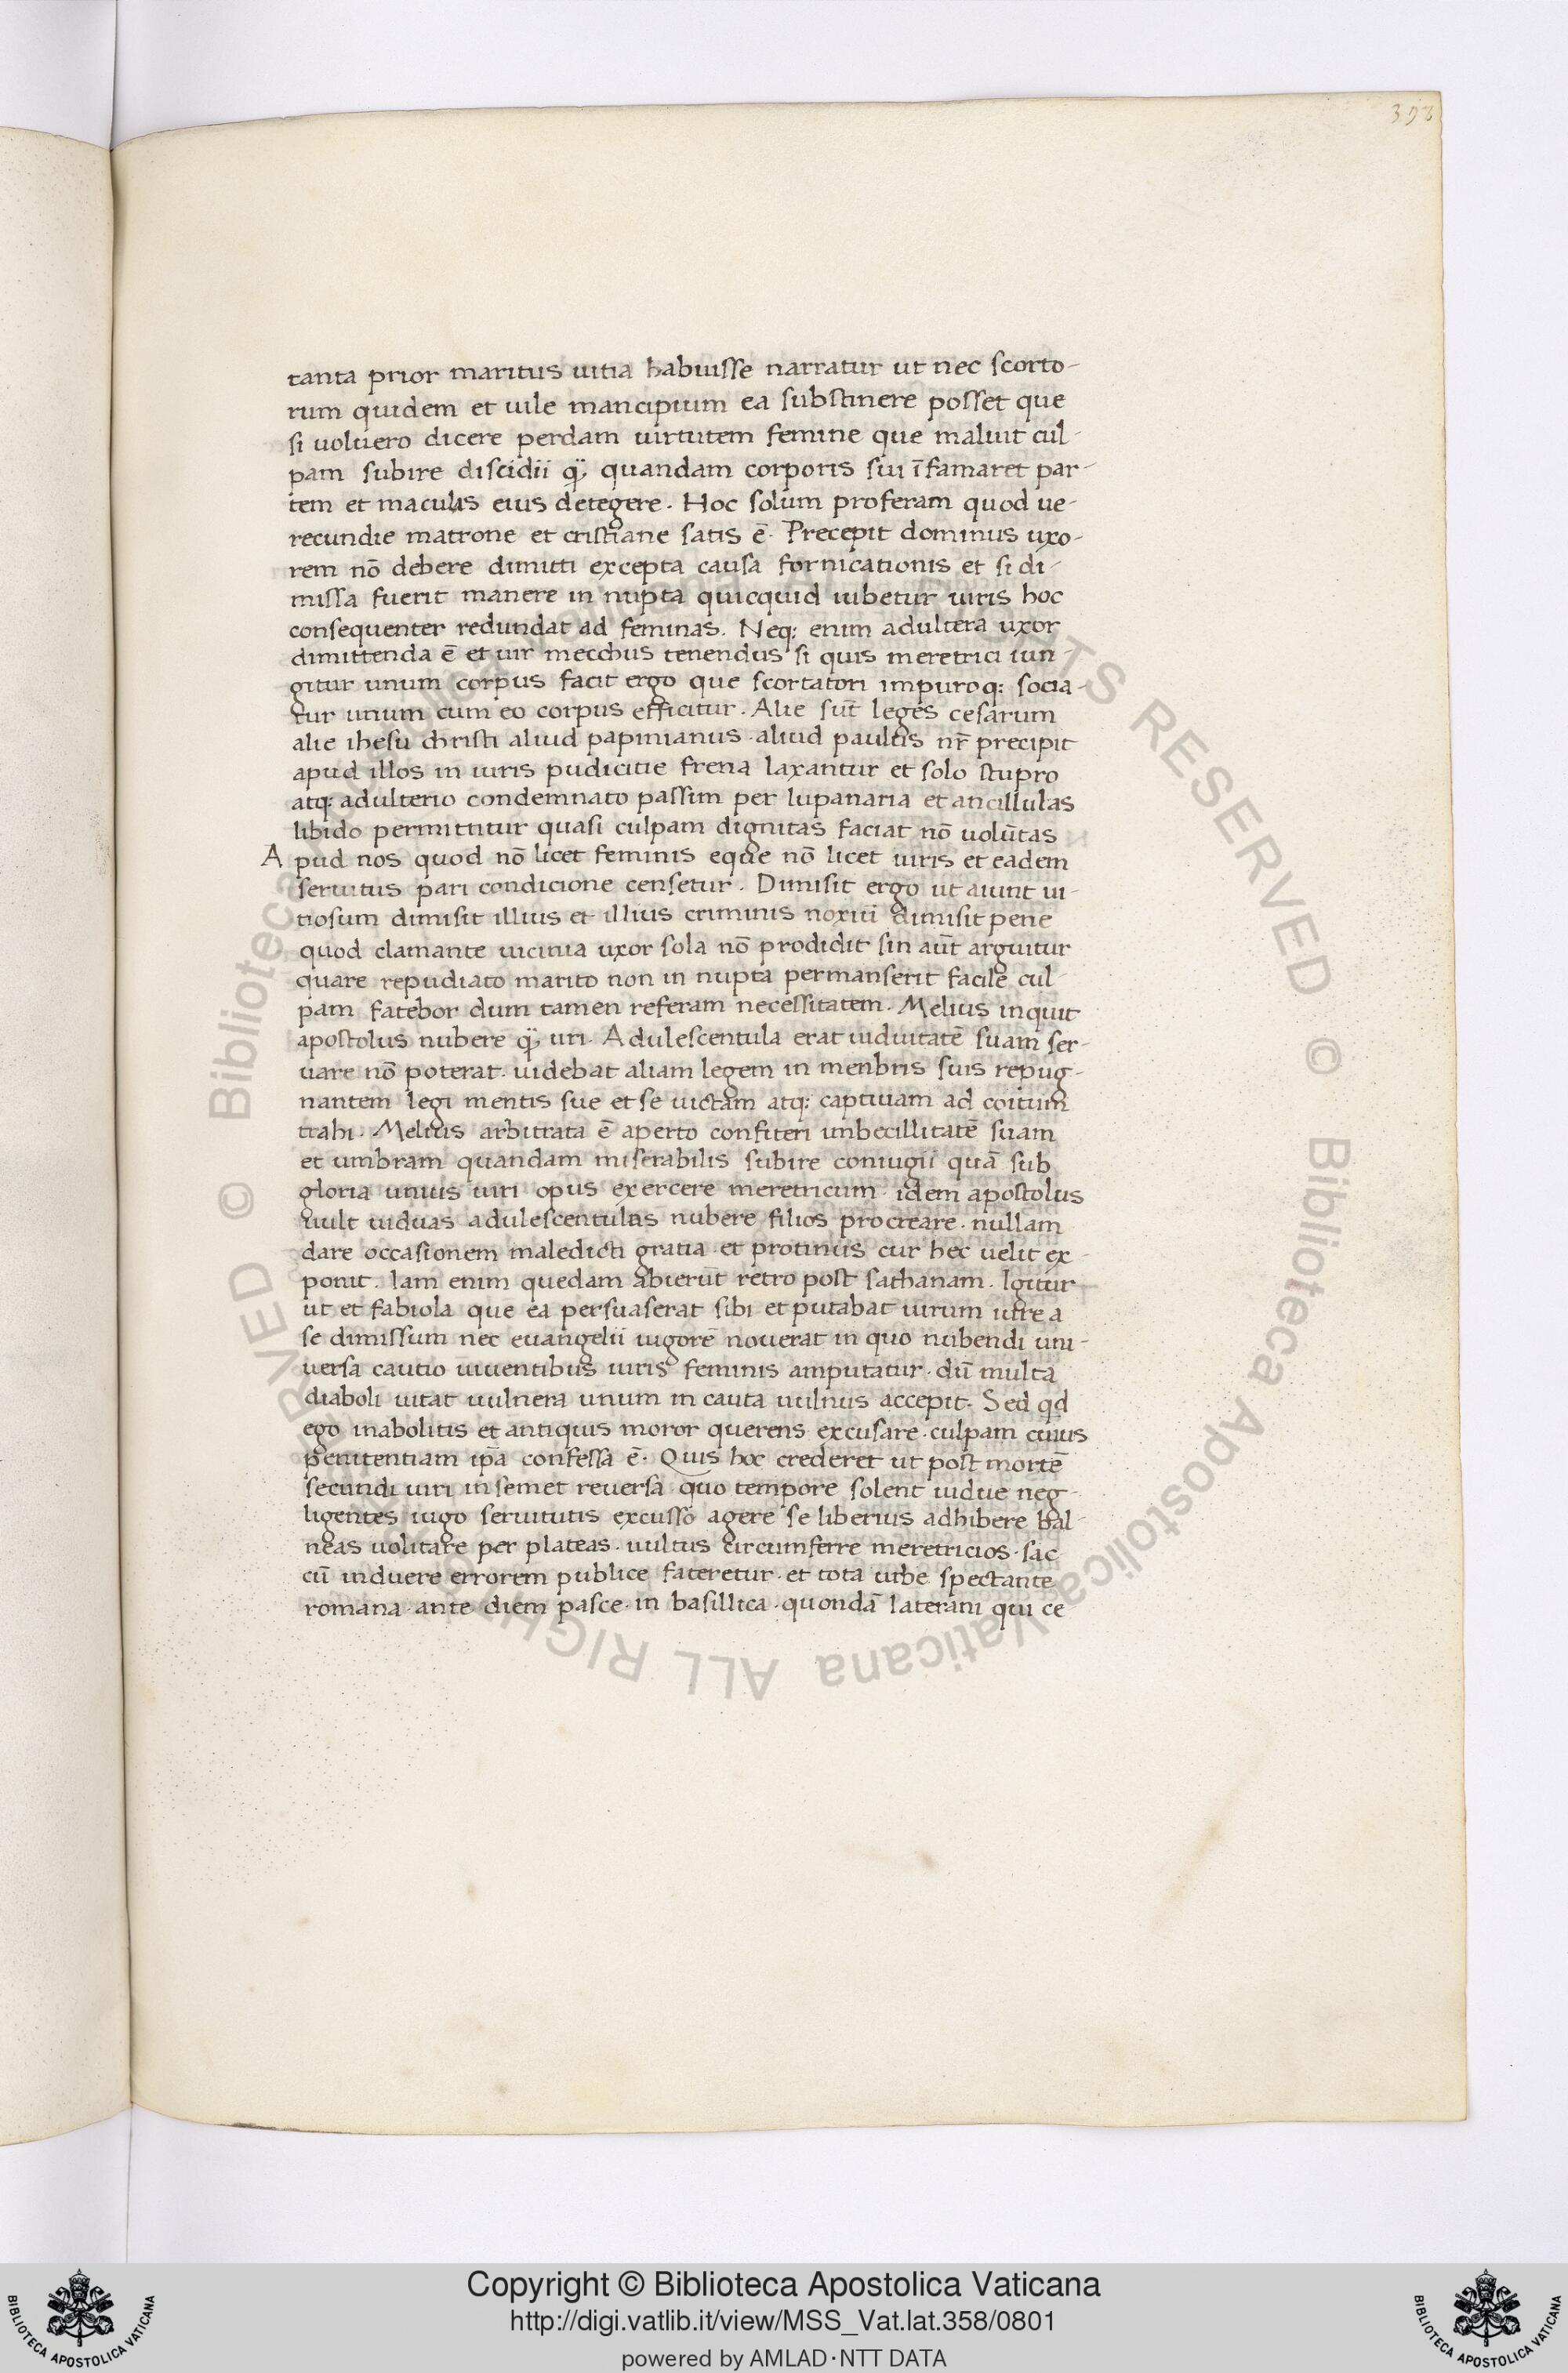 398
tanta prior maritus uitia habuisse narratur ut nec scorto-
rum quidem et uile mancipium ea substinere posset que
si uoluero dicere perdam uirtutem femine que maluit cul-
pam subire discidii q̃ȝ quandam corporis sui ĩfamaret par-
tem et maculas eius detegere. Hoc solum proferam quod ue-
recundie matrone et cristiane satis ē. Precepit dominus uxo-
rem nō debere dimitti excepta causa fornicationis et si di-
missa fuerit manere in nupta quicquid iubetur uiris hoc
consequenter redundat ad feminas. Neq; enim adultera uxor
dimittenda ē et uir mecchus tenendus si quis meretrici iun-
gitur unum corpus facit ergo que scortatori impuroq; socia-
tur unum cum eo corpus efficitur. Alie sūt leges cesarum
alie ihesu christi aliud papinianus. aliud paulus nr̄ precipit
apud illos in iuris pudicitie frena laxantur et solo stupro
atq; adulterio condemnato passim per lupanaria et ancillulas
libido permittitur quasi culpam dignitas faciat nō uolūtas
Apud nos quod nō licet feminis eque nō licet uiris et eadem
seruitus pari condicione censetur. Dimisit ergo ut aiunt ui-
tiosum dimisit illius et illius criminis noxiū dimisit pene
quod clamante uicinia uxor sola nō prodidit sin aūt arguitur
quare repudiato marito non in nupta permanserit facile cul-
pam fatebor dum tamen referam necessitatem. Melius inquit
apostolus nubere q̃ȝ uri. Adulescentula erat uiduitatē suam ser-
uare nō poterat. uidebat aliam legem in menbris suis repug-
nantem legi mentis sue et se uictam atq; captiuam ad coitum
trahi. Melius arbitrata ē aperto confiteri imbecillitatē suam
et umbram quandam miserabilis subire coniugii quā sub
gloria unius uiri opus exercere meretricum. idem apostolus
uult uiduas adulescentulas nubere filios procreare. nullam
dare occasionem maledicti gratia. et protinus cur hec uelit ex-
ponit. Iam enim quedam abierūt retro post sathanam. Igitur
ut et fabiola que ea persuaserat sibi et putabat uirum iure a
se dimissum nec euangelii uigorē nouerat in quo nubendi uni-
uersa cautio uiuentibus uiris feminis amputatur. dū multa
diaboli uitat uulnera unum in cauta uulnus accepit. Sed qd
ego inabolitis et antiquis moror querens excusare. culpam cuius
penitentiam ip̄a confessa ē. Quis hoc crederet ut post mortē
secundi uiri in semet reuersa quo tempore solent uidue neg-
ligentes iugo seruitutis excusso agere se liberius adhibere bal-
neas uolitare per plateas. uultus circumferre meretricios. sac
cū induere errorem publice fateretur. et tota urbe spectante
romana. ante diem pasce. in basillica. quondā laterani qui ce
Copyright © Biblioteca Apostolica Vaticana
http://digi.vatlib.it/view/MSS_Vat.lat.358/0801
powered by AMLAD·NTT DATA
BIBLIOTECA APOSTOLICA VATICANA
BIBLIOTECA APOSTOLICA VATICANA
© Biblioteca Apostolica Vaticana ALL RIGHTS RESERVED
© Biblioteca Apostolica Vaticana ALL RIGHTS RESERVED